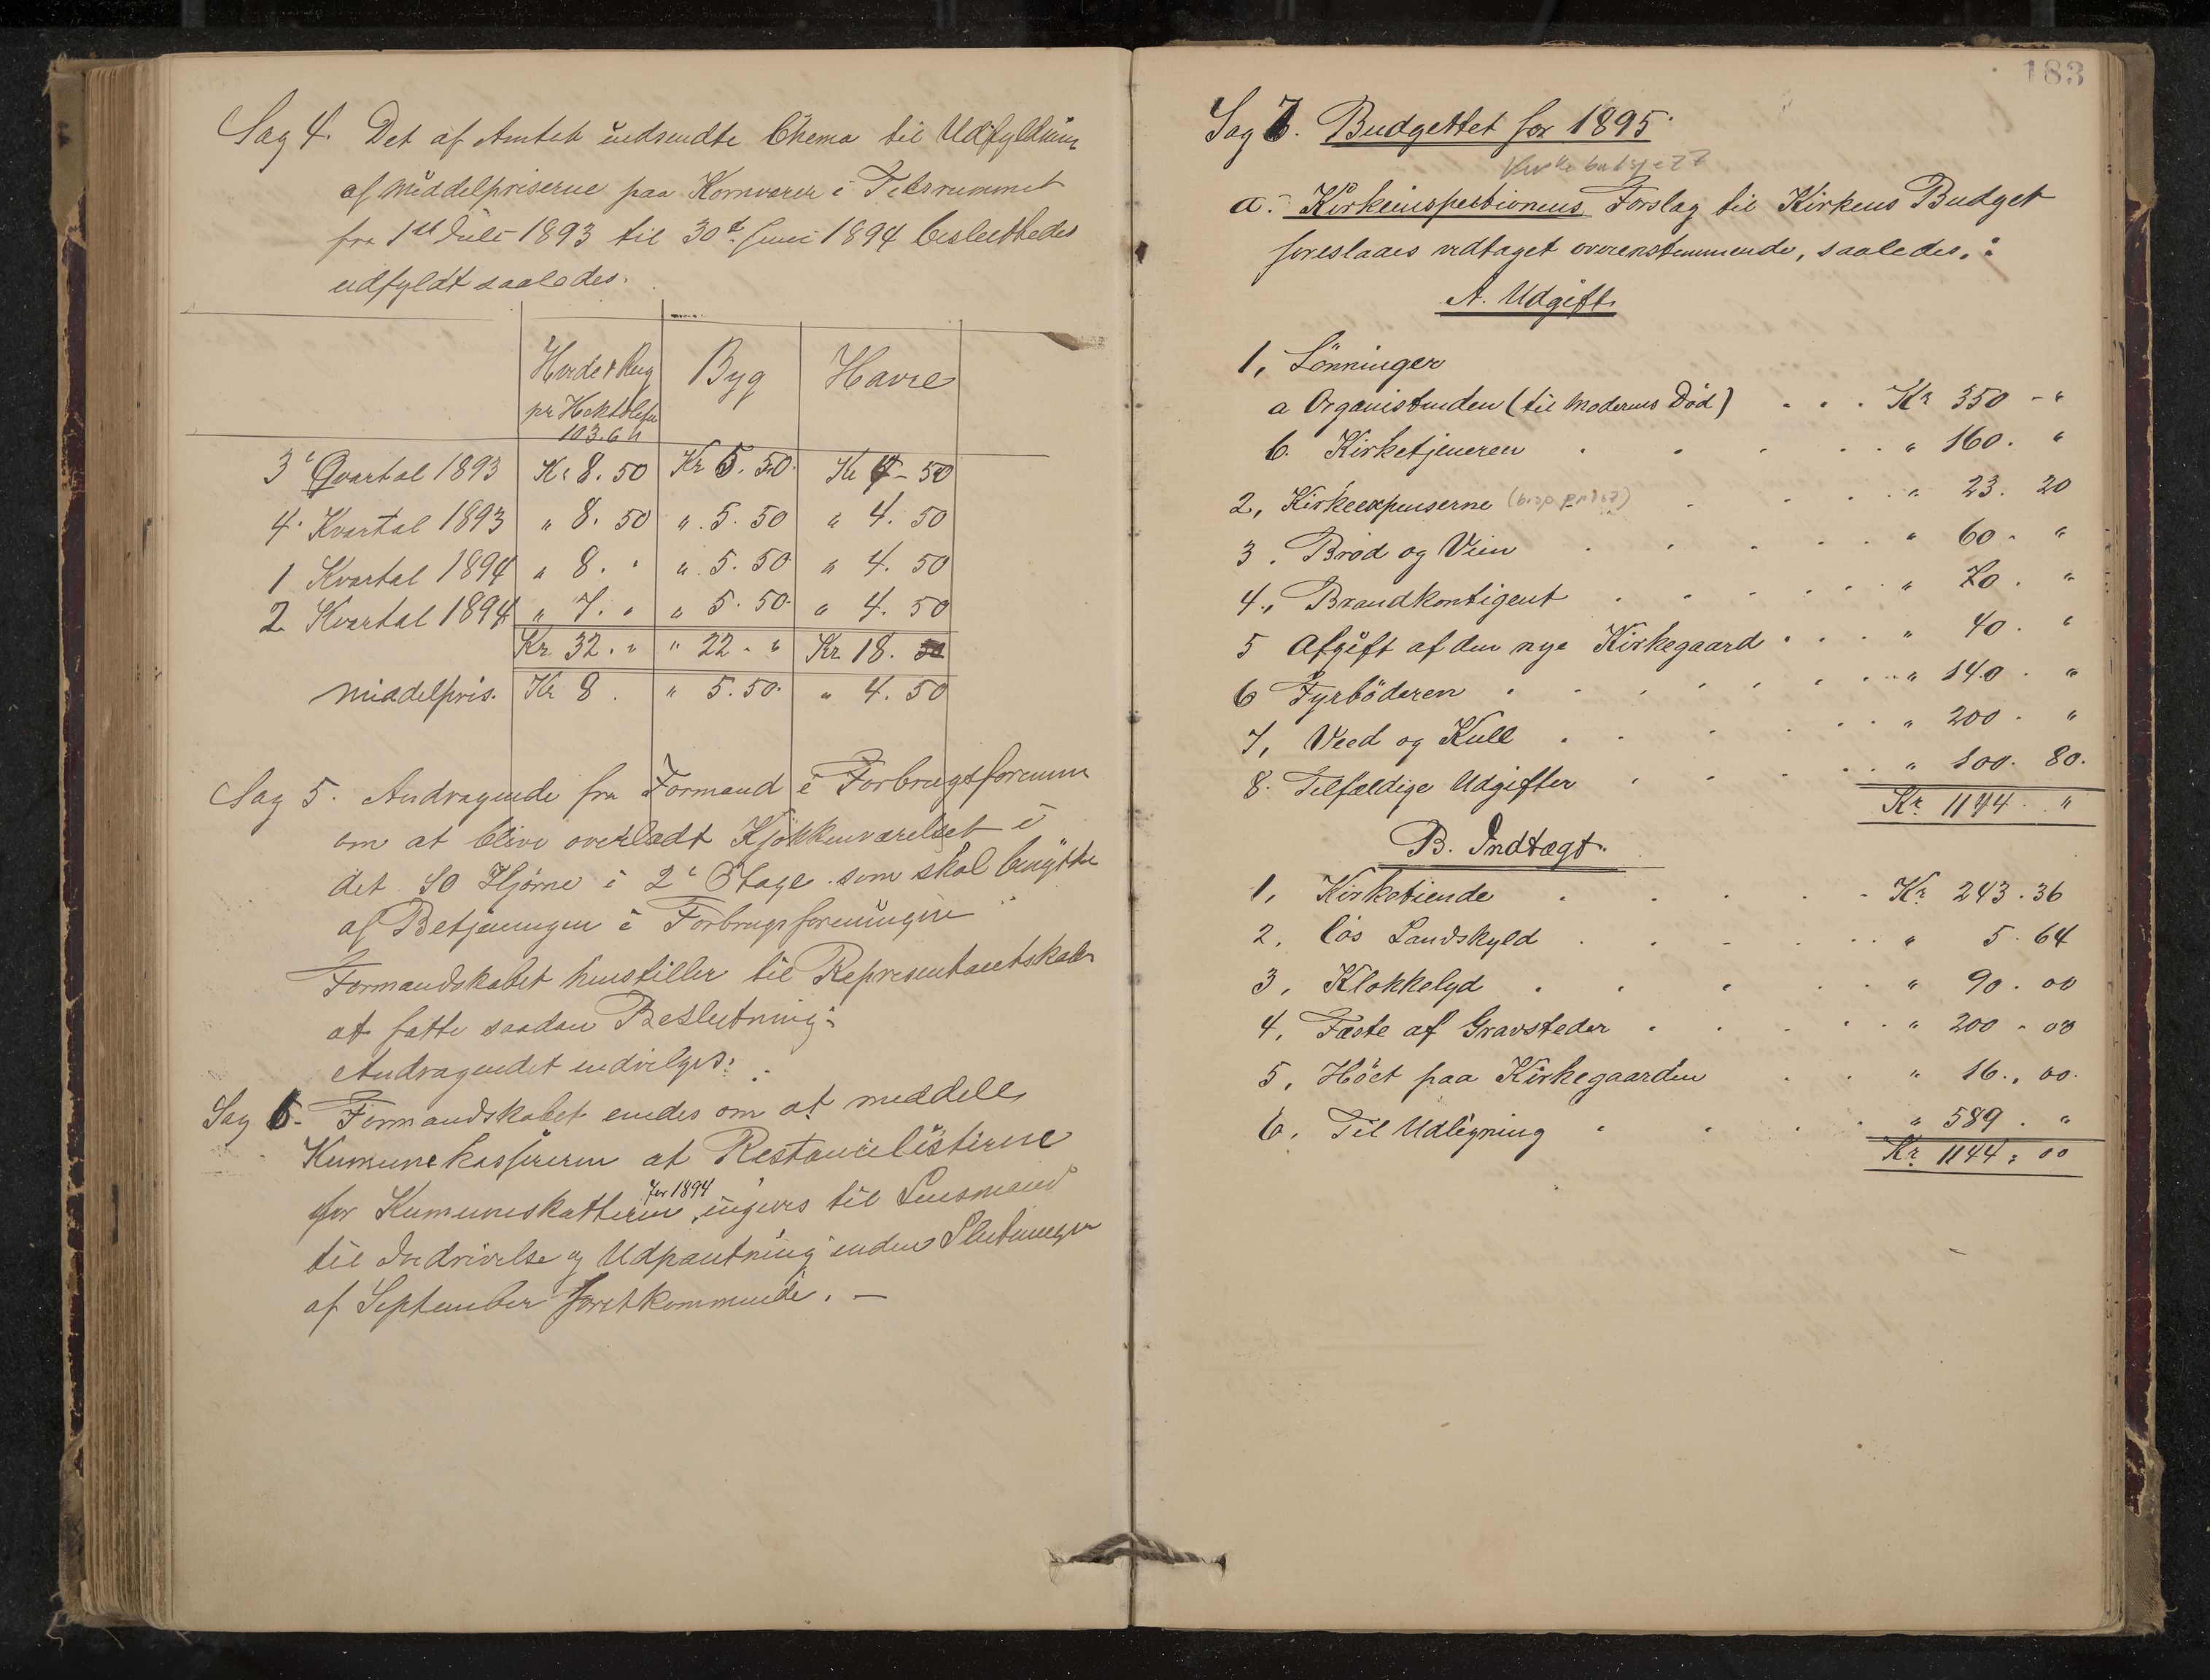 Sag 4. Det af Amtet indsendte Chema til Udfyldning
af Middelpriserne paa Kornvarer i Tidsrummet
fra 1st Juli 1893 til 30te Juni 1894 besluttedes
udfyldt saaledes.
Hvede & Rug Byg Havre
pr Hektoliter
103.6
3' Qvartal 1893 Kr 8. 50 Kr 5. 50. Kr 4 - 50
4. Kvartal 1893 " 8. 50 " 5. 50 " 4. 50
1 Kvartal 1894 " 8. " " 5. 50 " 4. 50
2 Kvartal 1894 " 7. " " 5. 50. " 4. 50
Kr. 32. " " 22 - " Kr. 18.
Middelpris. Kr 8. " 5.50. " 4. 50
Sag 5. Andragende fra Formand i Forbrugsforenin
om at blive overladt Kjøkkenværelset i
det SO Hjørne i 2' Etage som skal benyttes
af Betjeningen i Forbrugsforeningen
Formandskabet henstiller til Representantskabet
at fatte saadan Beslutning:
Andragendet indvilges.
Sag 6. Formandskabet enedes om at meddele
Kumunekassereren at Restancelisterne
for 1894
for Kumuneskatterne, ingives til Lensmand
til Inddrivelse og Udpantning inden Slutningen
af September førstkommende. —
183
Sag 7. Budgettet for 1895.
a. Kirkeinspektionens Forslag til Kirkens Budget
foreslaaes vedtaget overenstemmende, saaledes.:
A. Udgift.
1, Lönninger
a Organistenden (til Moderens Död) . . . Kr 350 - "
b. Kirketjeneren . . . . . " 160. "
2, Kirkeexpenserne . . . " 23. 20
3. Bröd og Viin . . . . . " 60 - "
4., Brandkontigent . . . . . " 70. "
5 Afgift af den nye Kirkegaard . . . " 40. "
6 Fyrböderen . . . . . " 140. "
7, Veed og Kull . . . . . " 200. "
8. Tilfældige Udgifter . . . . " 100. 80.
Kr. 1144. "
B. Indtægt.
1, Kirketiende . . . . - Kr. 243.36
2. lös Landskyld . . . . . " 5. 64
3, Klokkelyd . . . . . " 90. 00
4, Fæste af Gravsteder . . . . . " 200 - 00
5, Höet paa Kirkegaarden . . " 16., 00.
6. Til Udligning . . . . " 589. "
Kr. 1144: 00